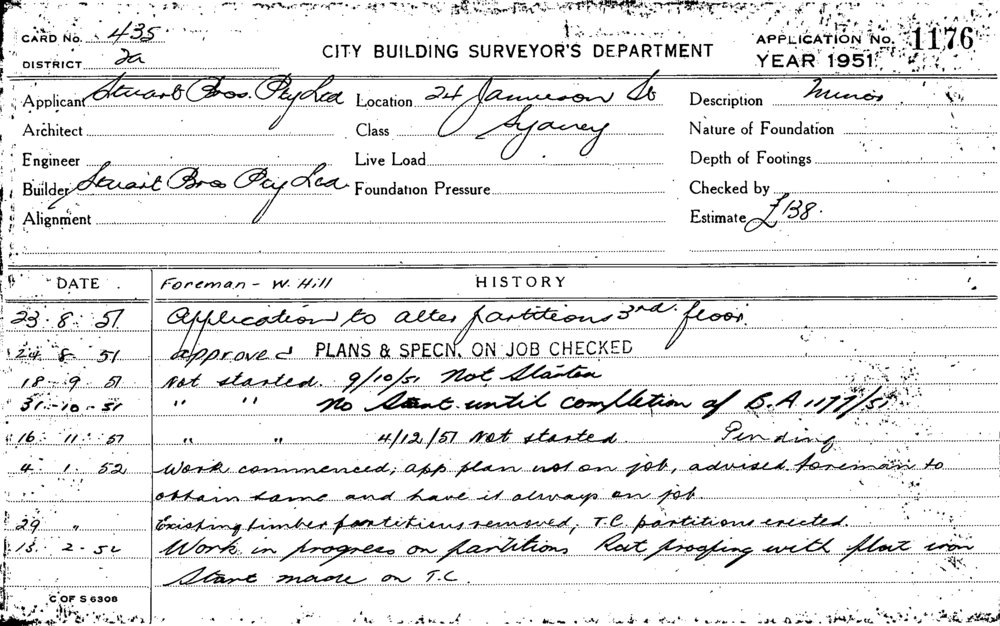 CARD No. 435
DISTRICT 2a
CITY BUILDING SURVEYOR'S DEPARTMENT
APPLICATION No. 1176
YEAR 1951
Applicant Stuart Bros. Pty Ltd
Location 24 Jamieson St
Description Minor
Architect
Class Sydney
Nature of Foundation
Engineer
Live Load
Depth of Footings
Builder Stuart Bros Pty Ltd.
Foundation Pressure
Checked by
Alignment
Estimate £138.
DATE
Foreman - W. Hill
HISTORY
23 . 8 . 51 Application to alter partitions 3rd floor.
24 . 8 . 51 approved PLANS & SPECN. ON JOB CHECKED
18 . 9 . 51 Not started. 9/10/51 Not Started
31 - 10 - 51 " " No Start until completion of B.A 1177/51
16 . 11 . 51 " " 4/12/51 Not started. Pending
4 . 1 . 52 Work commenced; app plan not on job, advised foreman to
obtain same and have it always on job.
29 " Existing timber partitions removed, T.C. partitions erected.
13. 2 - 52 Work in progress on partitions Rat proofing with flat iron
Start made on T.C.
C OF S 6308